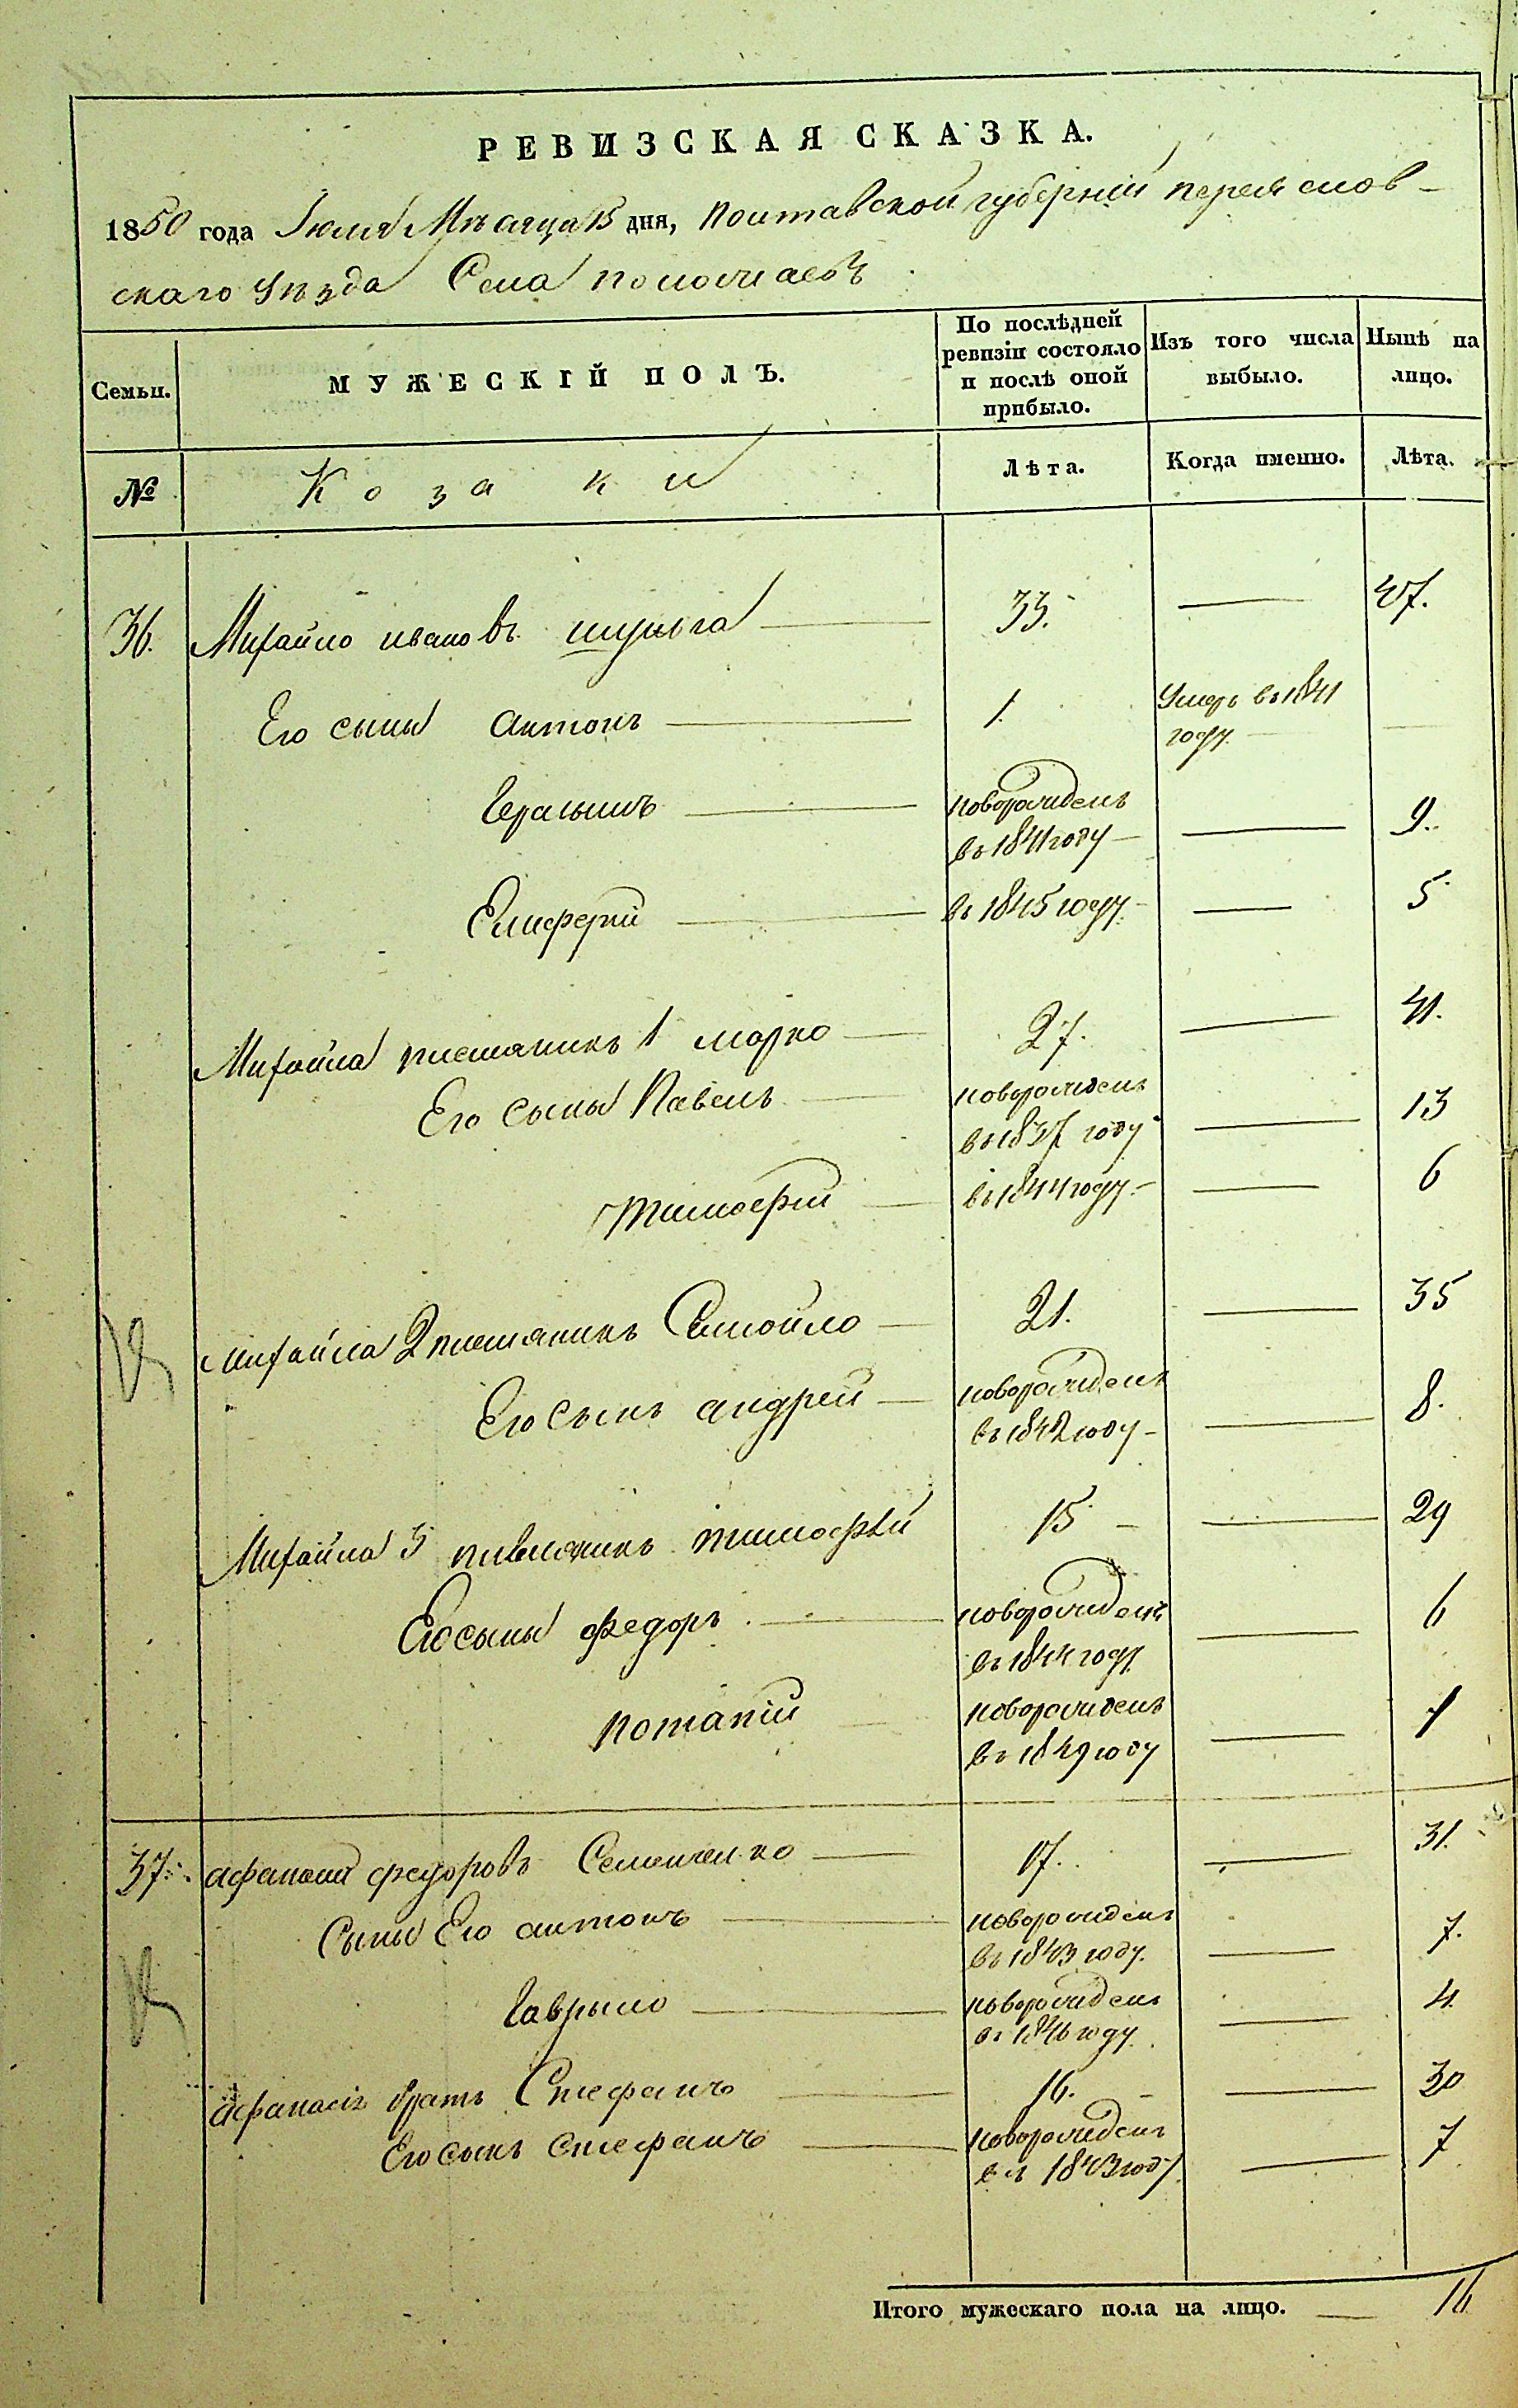 РЕВИЗСКАЯ СКАЗКА.
1850 года Июля Мѣсяца 15 дня, Полтавской губерніи переяслов-
скаго Уѣзда Села
Семьи. МУЖЕСКІЙ ПОЛЪ. По послѣдней ревизіи состояло и послѣ оной прибыло. Изъ того числа выбыло. Нынѣ на лицо.
№ Козаки Лѣта. Когда именно. Лѣта.
36. Михайло ивановъ 33. 47.
Его сыны антонъ 1. Умеръ въ 1841 году.
Герасымъ новорожденъ въ 1841 году 9.
Елисферій въ 1845 году 5
Михайла племяникъ 1 марко 27. 41.
Его сыны Павелъ новорожденъ въ 1837 году 13
тимофій въ 1844 году 6
михайла 2 племяникъ Самойло 21. 35
Его сынъ андрей новорожденъ въ 1842 году 8.
Михайла 3 племяникъ тимофѣй 15 29
Его сыны федоръ новорожденъ въ 1844 году 6
потапій новорожденъ въ 1849 году 1
37. афанасій федоровъ Семенченко 17. 31.
Сыны Его антонъ новорожденъ въ 1843 году. 7.
Гаврыло новорожденъ въ 1846 году 4.
афанасія братъ Стефанъ 16. 30
Его сынъ стефанъ новорожденъ въ 1843 году 7
Итого мужескаго пола на лицо. 16